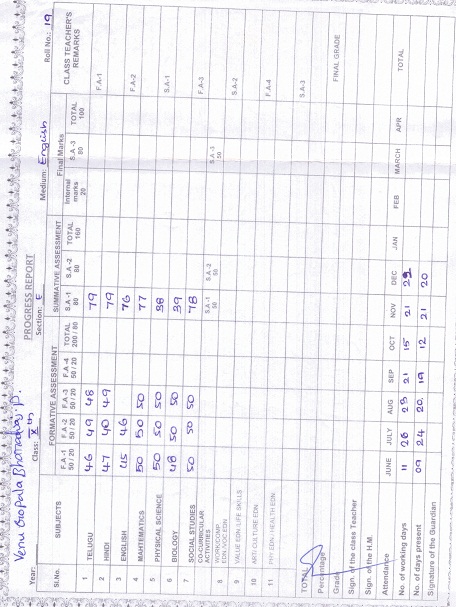 PROGRESS REPORT
Venu Gopala
Year: Class: Xth Section: E Medium: English Roll No.: 19
Sl.No. SUBJECTS FORMATIVE ASSESSMENT SUMMATIVE ASSESSMENT Final Marks CLASS TEACHER'S REMARKS
F.A-1 50/20 F.A-2 50/20 F.A-3 50/20 F.A-4 50/20 TOTAL 200/80 S.A-1 80 S.A-2 80 TOTAL 160 Internal marks 20 S.A-3 80 TOTAL 100
1 TELUGU 46 49 48 79 F.A-1
2 HINDI 47 40 49 79
3 ENGLISH 45 46 76 F.A-2
4 MAHTEMATICS 50 50 50 77
5 PHYSICAL SCIENCE 50 50 50 38 S.A-1
6 BIOLOGY 48 50 50 39
7 SOCIAL STUDIES 50 50 50 78 F.A-3
CO-CURRICULAR ACTIVITIES S.A-1 50 S.A-2 50 S.A-3 50
8 WORK/COMP. EDN./VOC EDN
9 VALUE EDN/LIFE SKILLS S.A-2
10 ART/CULTURE EDN
11 PHY EDN / HEALTH EDN F.A-4
TOTAL
Percentage S.A-3
Grade
Sign. of the class Teacher FINAL GRADE
Sign. of the H.M.
Attendance JUNE JULY AUG SEP OCT NOV DEC JAN FEB MARCH APR TOTAL
No. of working days 11 26 23 21 15 21
No. of days present 09 24 20 19 12 21 20
Signature of the Guardian